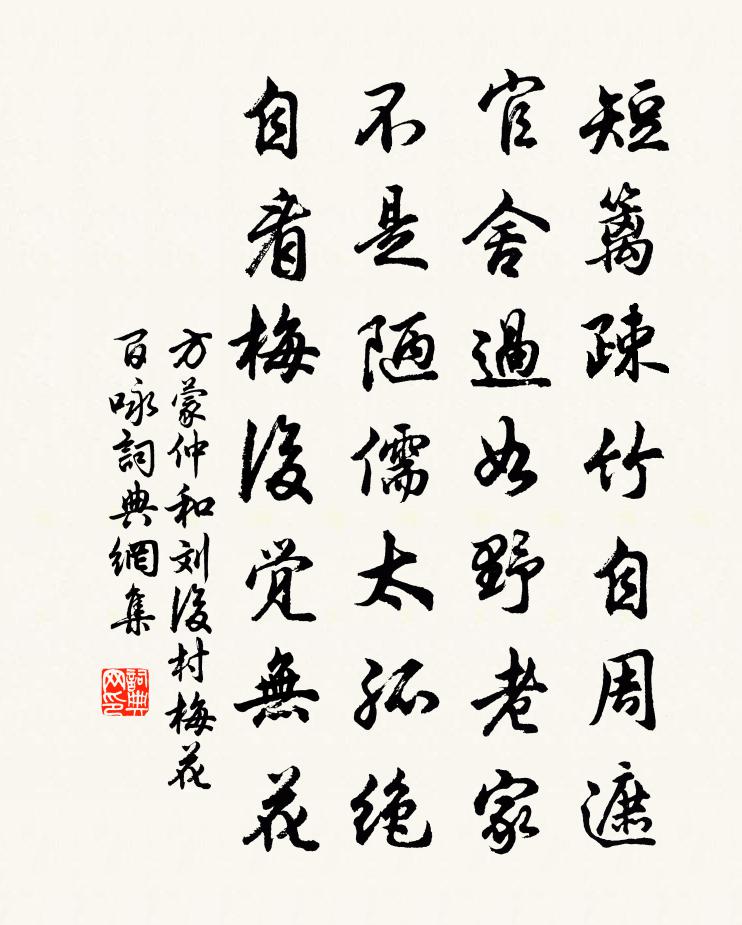 短篱疎竹自周遮
官舍過如野老家
不是陋儒太孤绝
自看梅後觉無花
方蒙仲和刘後村梅花
百咏詞典網集
詞典网印